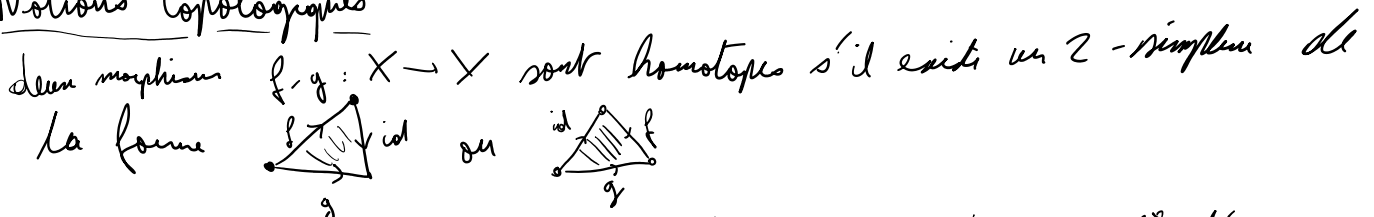 Notions topologiques
deux morphismes f, g : X → Y sont homotopes s'il existe un 2-simplexe de
la forme f id g ou id f g